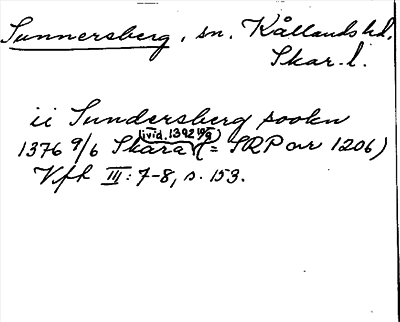 Sunnersberg, sn. Kållands hd,
Skar. l.
ii Sundersberg sookn
(vid. 1392 19/9)
1376 9/6 Skara (= SRP avr 1206)
Vfh III: 7-8, s. 153.